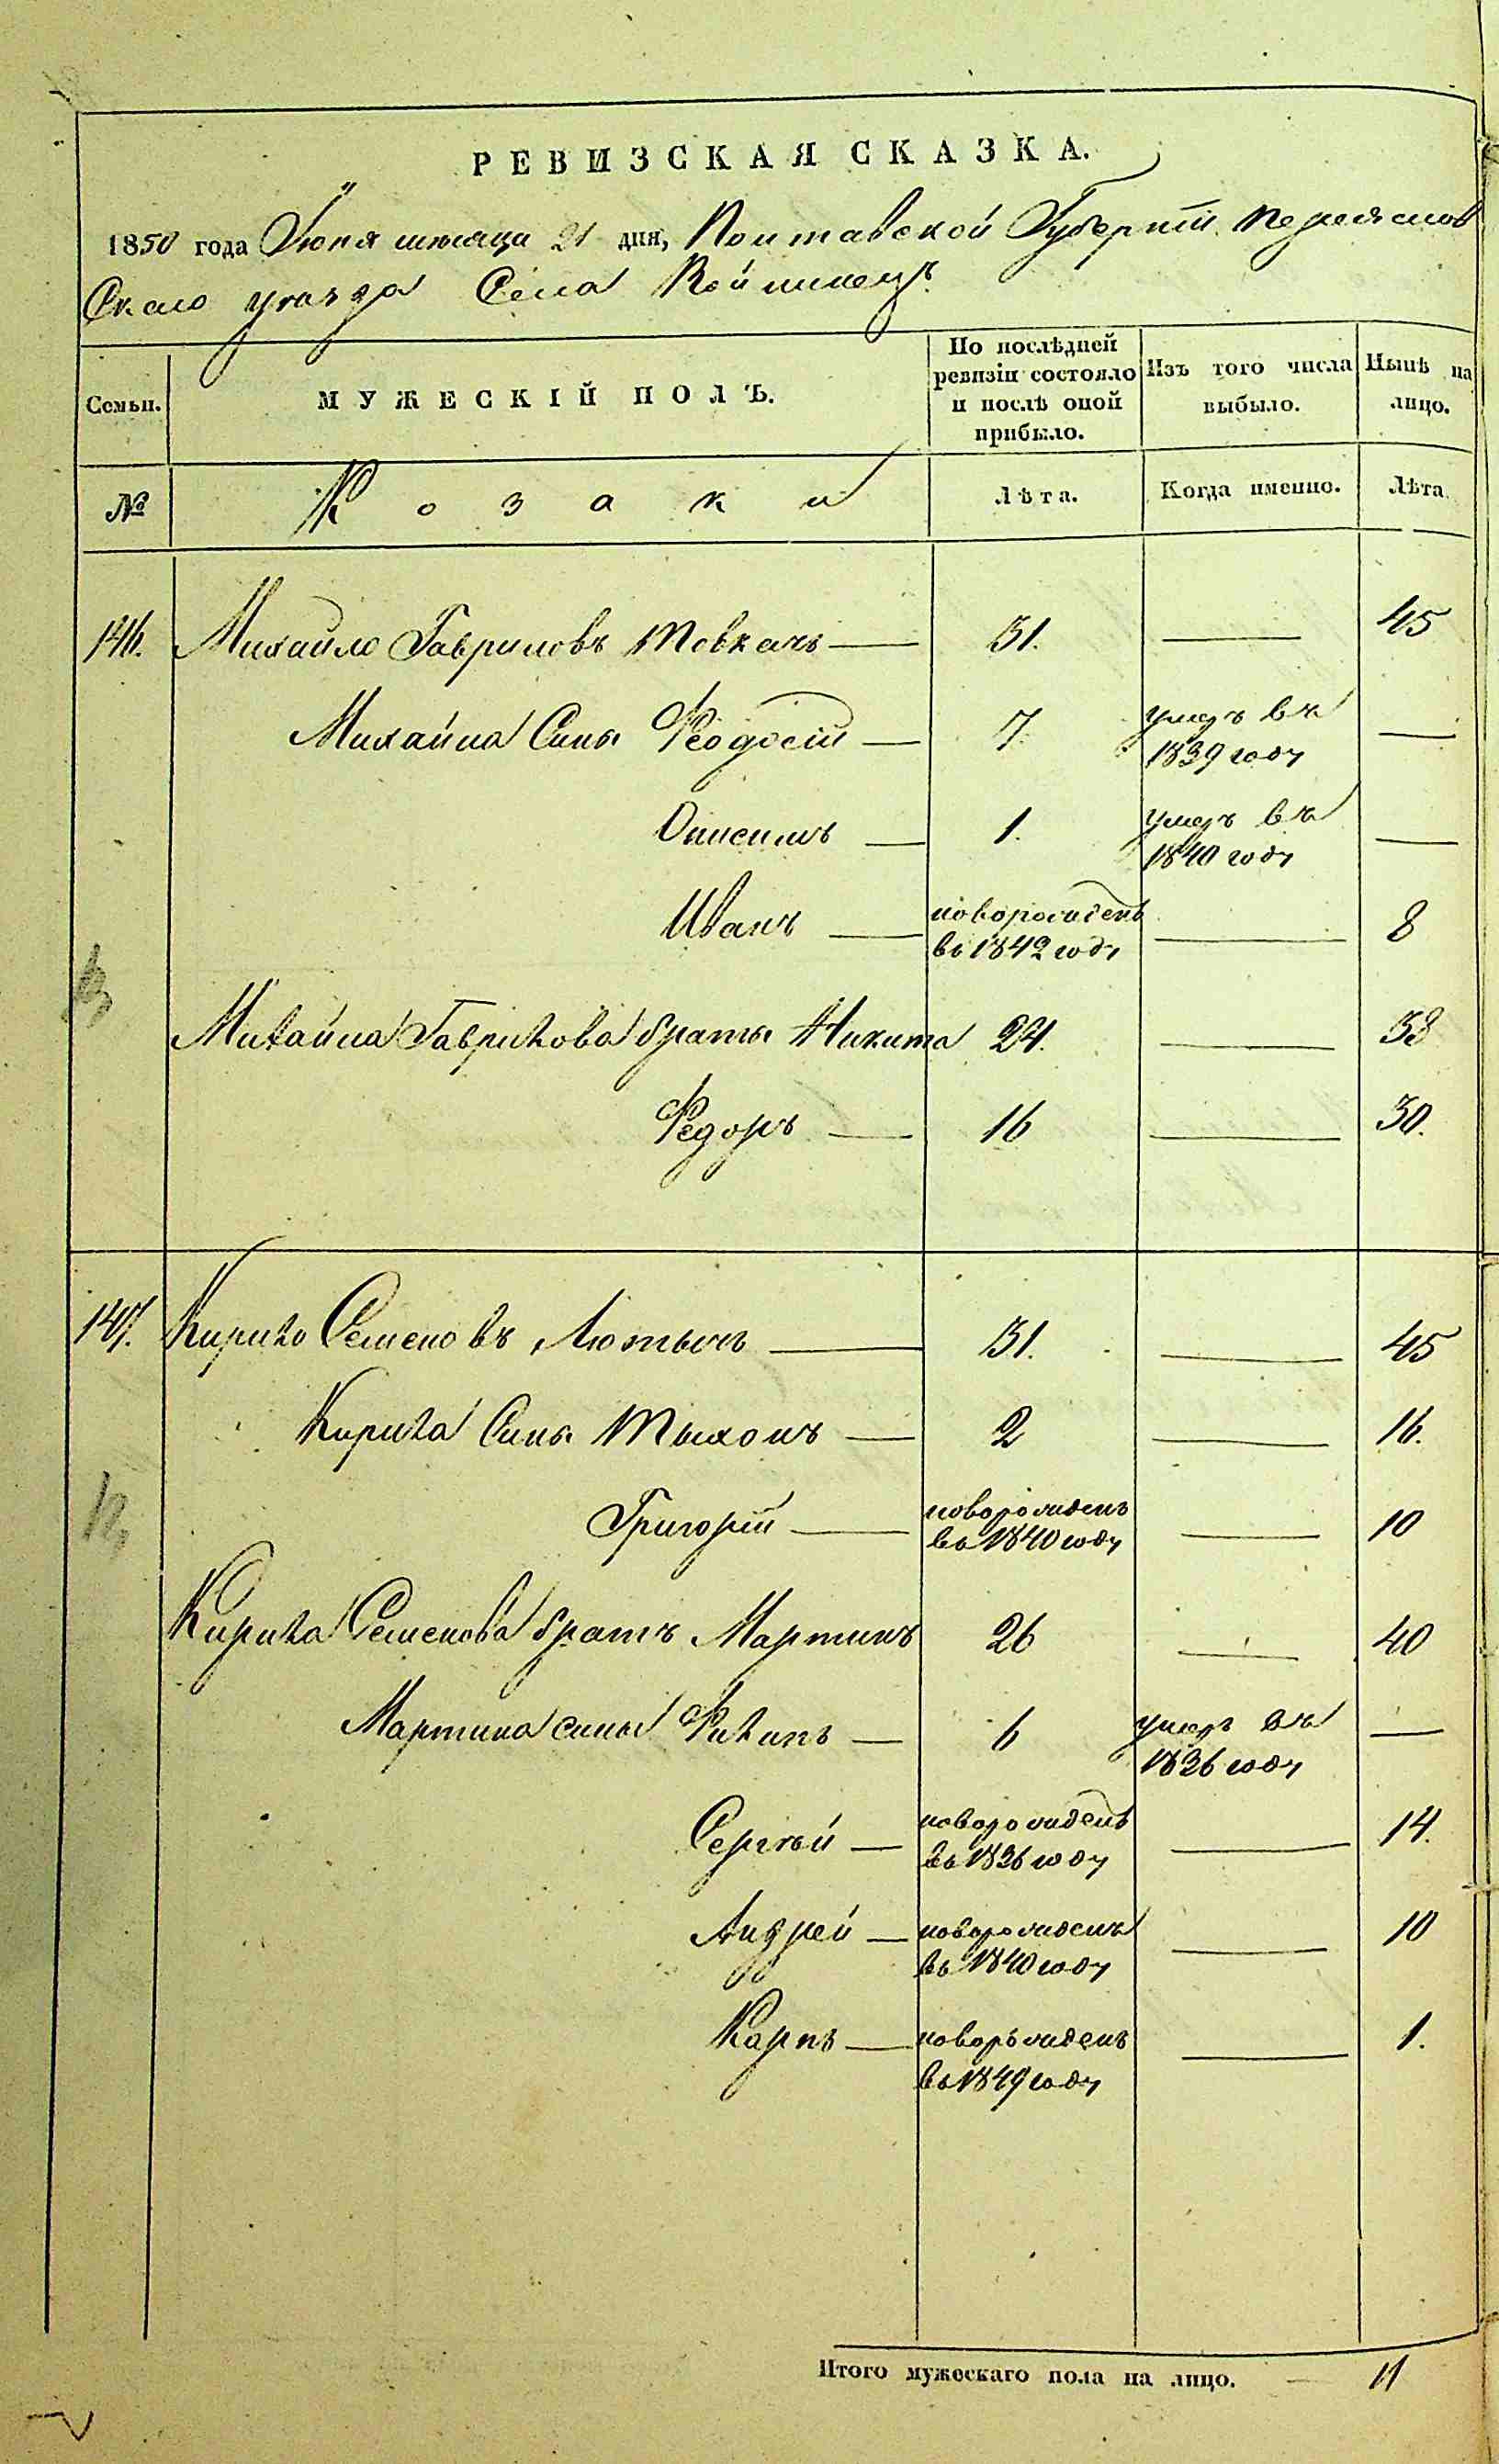 РЕВИЗСКАЯ СКАЗКА.
1850 года Іюня мѣсяца 21 дня, Полтавской Губерніи Переяслов
скаго уѣзда Села Войтовецъ
Семьи. МУЖЕСКІЙ ПОЛЪ. По послѣдней ревизіи состояло и послѣ оной прибыло. Изъ того числа выбыло. Нынѣ на лицо.
№ Козаки Лѣта. Когда именно. Лѣта.
146. Михайло Гавриловъ Товкачъ — 31. — 45
Михайла Сыны Феодосій — 7. умеръ въ 1839 году —
Онисимъ — 1. умеръ въ 1840 году —
Иванъ — новорожденъ въ 1842 году — 8
Михайла Гаврилова братья Никита 24. — 38
Федоръ — 16 — 30.
147. Кирило Семеновъ Лютый — 31. — 45
Кирила Сыны Тыхонъ — 2 — 16.
Григорій — новорожденъ въ 1840 году — 10
Кирила Семенова братъ Мартинъ 26 — 40
Мартина сыны Филипъ — 6 умеръ въ 1836 году —
Сергѣй — новорожденъ въ 1836 году — 14.
Андрей — новорожденъ въ 1840 году — 10
Карпъ — новорожденъ въ 1849 году — 1.
Итого мужескаго пола на лицо. — 11